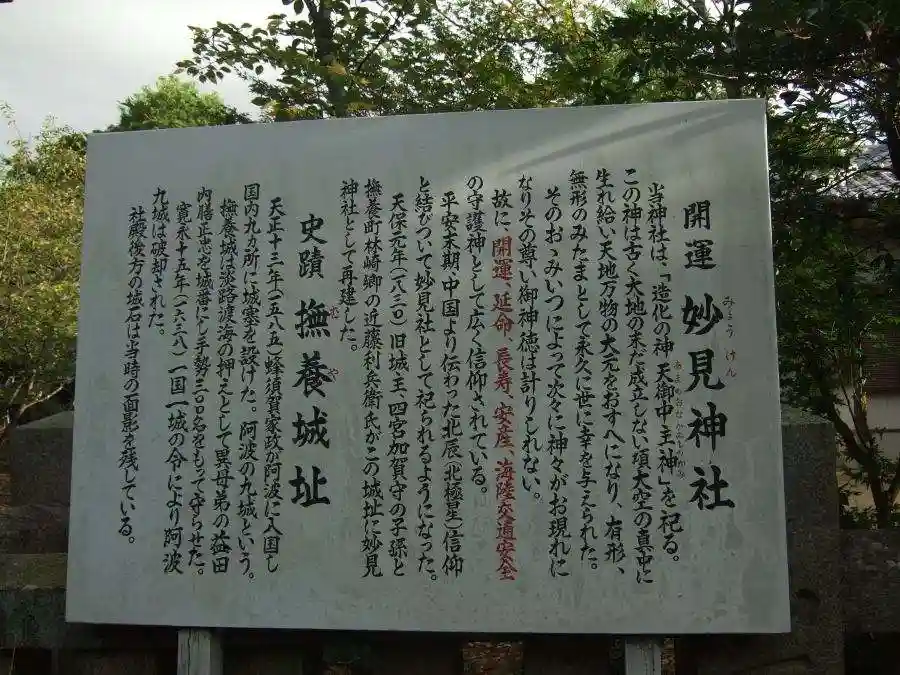 開運 妙見神社
みょうけん
当神社は、「造化の神 天御中主神」を祀る。
あまのみなかぬしのかみ
この神は古く大地の未だ成立しない頃大空の真中に
生れ給い天地万物の大元をおすへになり、有形、
無形のみたまとして永久に世に幸を与えられた。
そのおゝみいつによって次々に神々がお現れに
なりその尊い御神徳は計りしれない。
故に、開運、延命、長寿、安産、海陸交通安全
の守護神として広く信仰されている。
平安末期、中国より伝わった北辰(北極星)信仰
と結びついて妙見社として祀られるようになった。
天保元年(一八三〇)旧城主、四宮加賀守の子孫と
撫養町林崎郷の近藤利兵衛氏がこの城址に妙見
神社として再建した。
史蹟 撫養城址
むや
天正十三年(一五八五)蜂須賀家政が阿波に入国し
国内九カ所に城塞を設けた。阿波の九城という。
撫養城は淡路渡海の押えとして異母弟の益田
内膳正忠を城番にし手勢三〇〇名をもって守らせた。
寛永十五年(一六三八)一国一城の令により阿波
九城は破却された。
社殿後方の城石は当時の面影を残している。